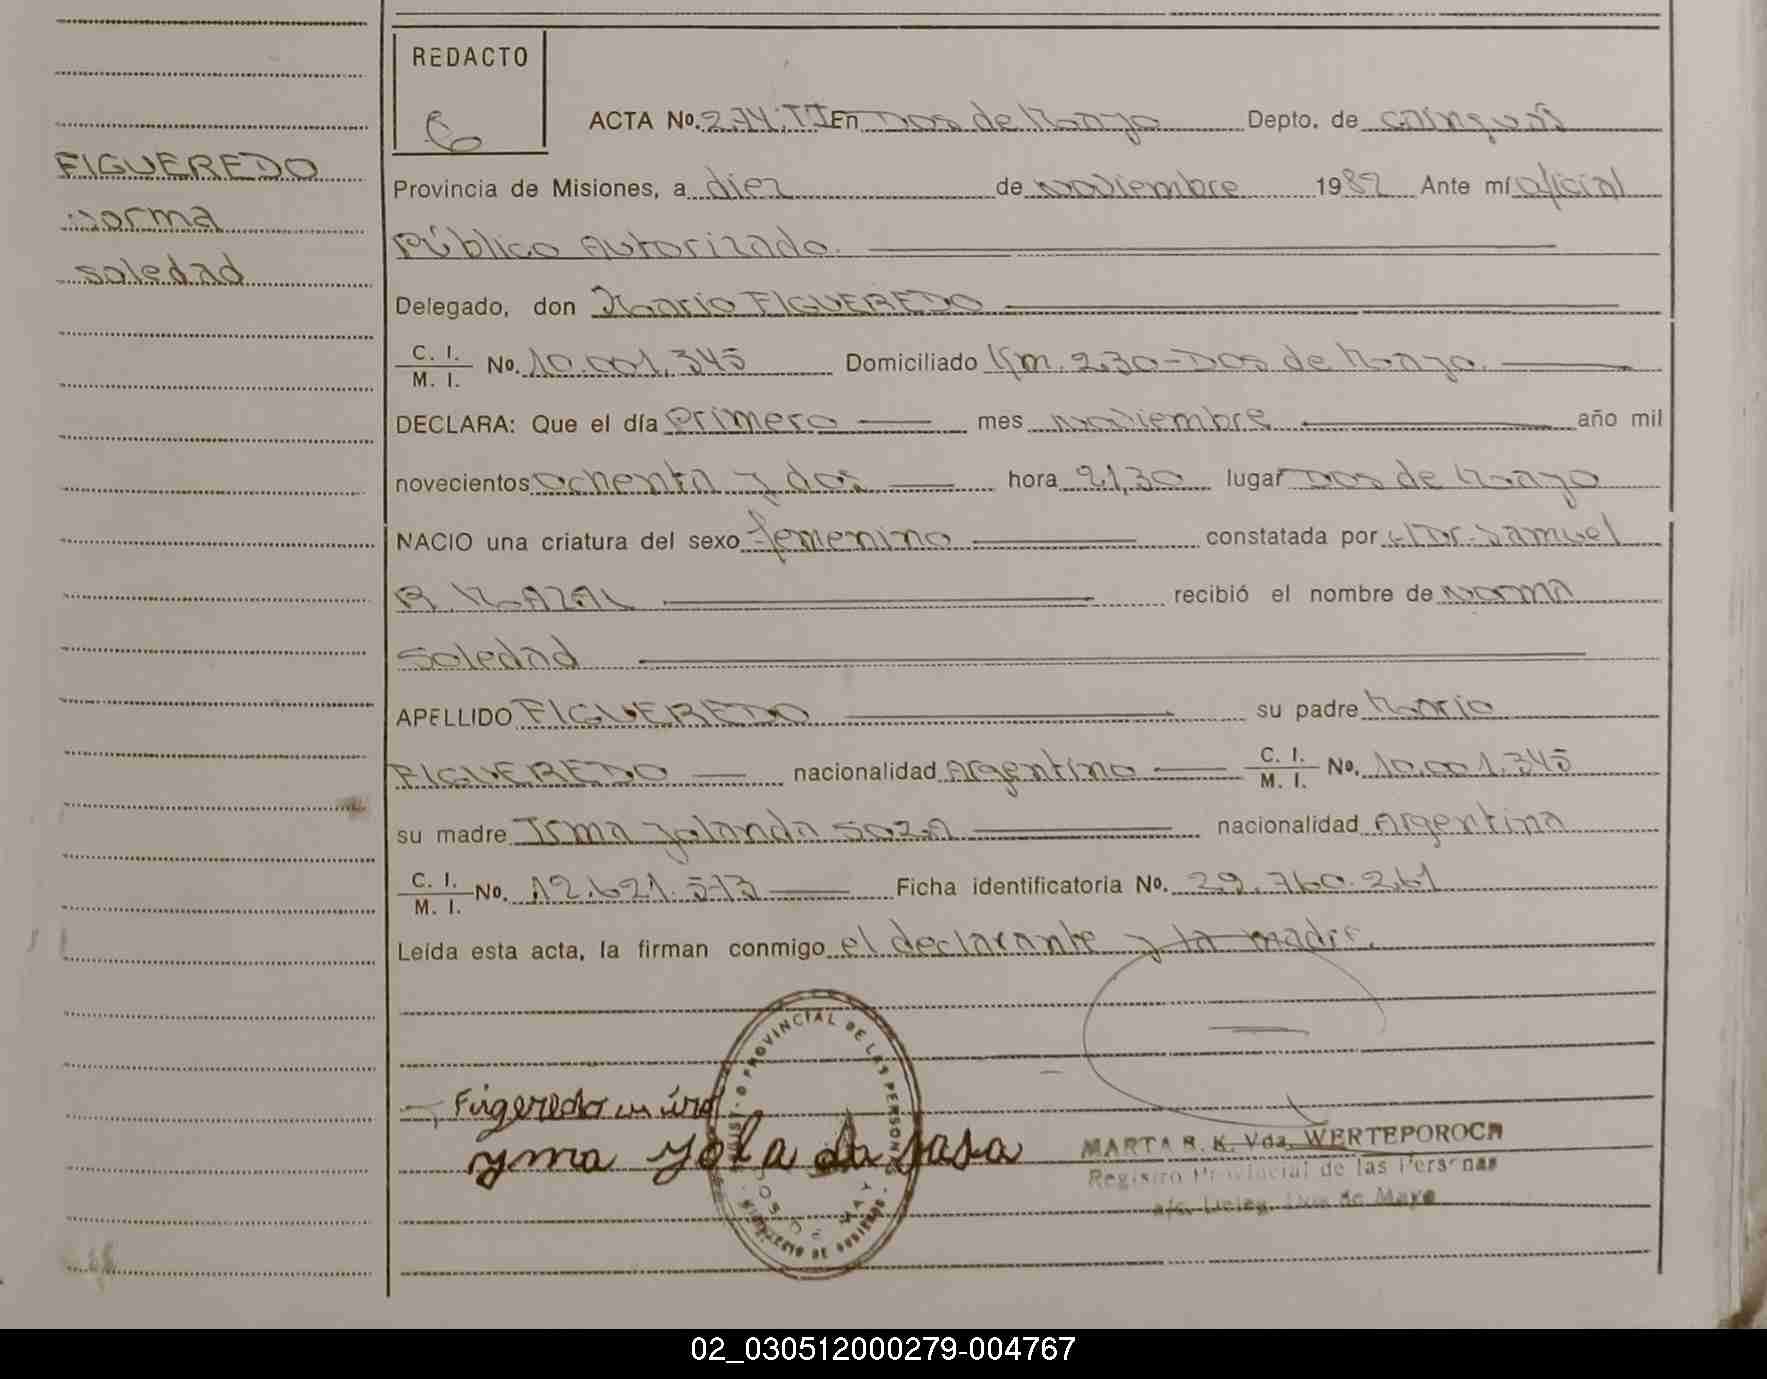 REDACTO
ACTA No. 274, TI En Dos de Mayo Depto. de Cainguás
FIGUEREDO
Norma
Soledad
Provincia de Misiones, a diez de noviembre 1982 Ante mí oficial
Público Autorizado.
Delegado, don Mario FIGUEREDO
C. I. / M. I. No. 10.001.345 Domiciliado Km. 230-Dos de Mayo.
DECLARA: Que el día primero mes noviembre año mil
novecientos ochenta y dos hora 21,30 lugar Dos de Mayo
NACIO una criatura del sexo femenino constatada por el Dr. Samuel
R. MAZAL recibió el nombre de Norma
Soledad
APELLIDO FIGUEREDO su padre Mario
FIGUEREDO nacionalidad Argentino C. I. / M. I. No. 10.001.345
su madre Irma Yolanda SOZA nacionalidad Argentina
C. I. / M. I. No. 12.621.513 Ficha identificatoria No. 29.760.261
Leída esta acta, la firman conmigo el declarante y la madre.
PROVINCIAL DE LAS PERSONAS
Figeredo
yma yola da sasa
MARTA B. K. Vda. WERTEPOROCH
Registro Provincial de las Personas
a/c. Deleg. Dos de Mayo
DOS DE MAYO
MINISTERIO DE GOBIERNO
02_030512000279-004767